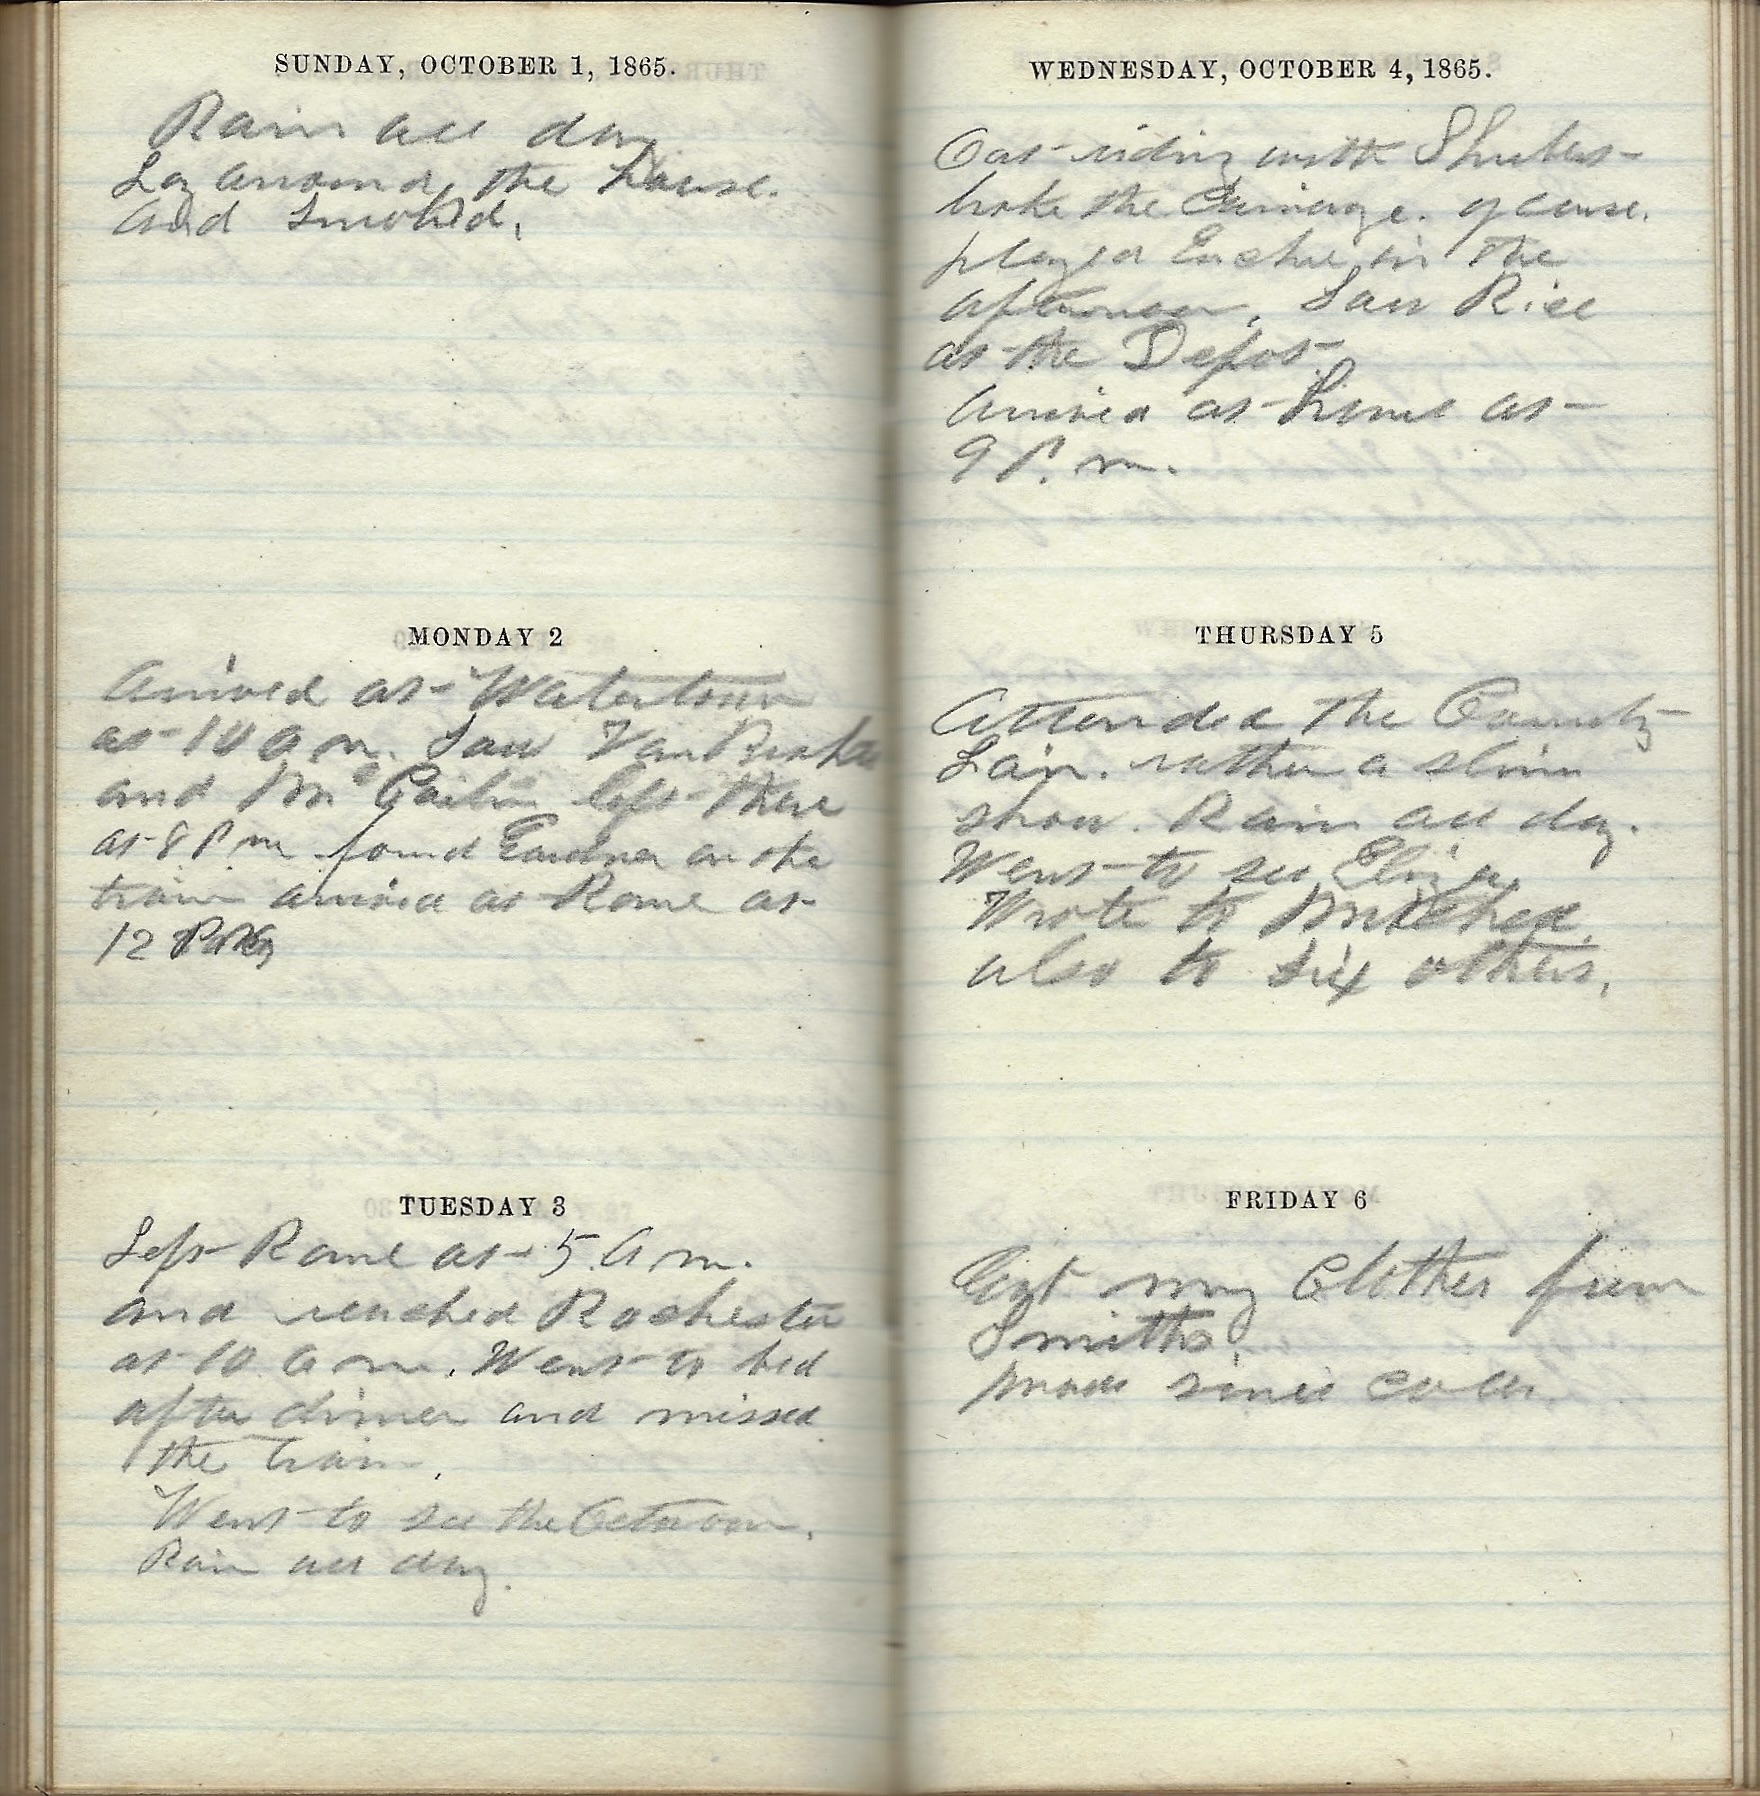 SUNDAY, OCTOBER 1, 1865.
Rain all day
Lay around the house.
and smoked.
MONDAY 2
Arrived at Watertown
at 10 a m. Saw Van
and left there
at 8 P m found Gardner on the
train arrived at Rome at
12
TUESDAY 3
Left Rome at 5 a m.
and reached Rochester
at 10 a m. Went to bed
after dinner and missed
the train.
Went to see the Octoroon.
Rain all day.
WEDNESDAY, OCTOBER 4, 1865.
Out riding with
broke the Carriage. of course.
played Euchre in the
afternoon. Saw Rice
at the Depot
arrived at home at
9 P. m.
THURSDAY 5
Attended the County
Fair. rather a slim
show. Rain all day.
Went to see Eliza
Wrote to Mitchel
also to six others.
FRIDAY 6
Got my Clothes from
Smiths.